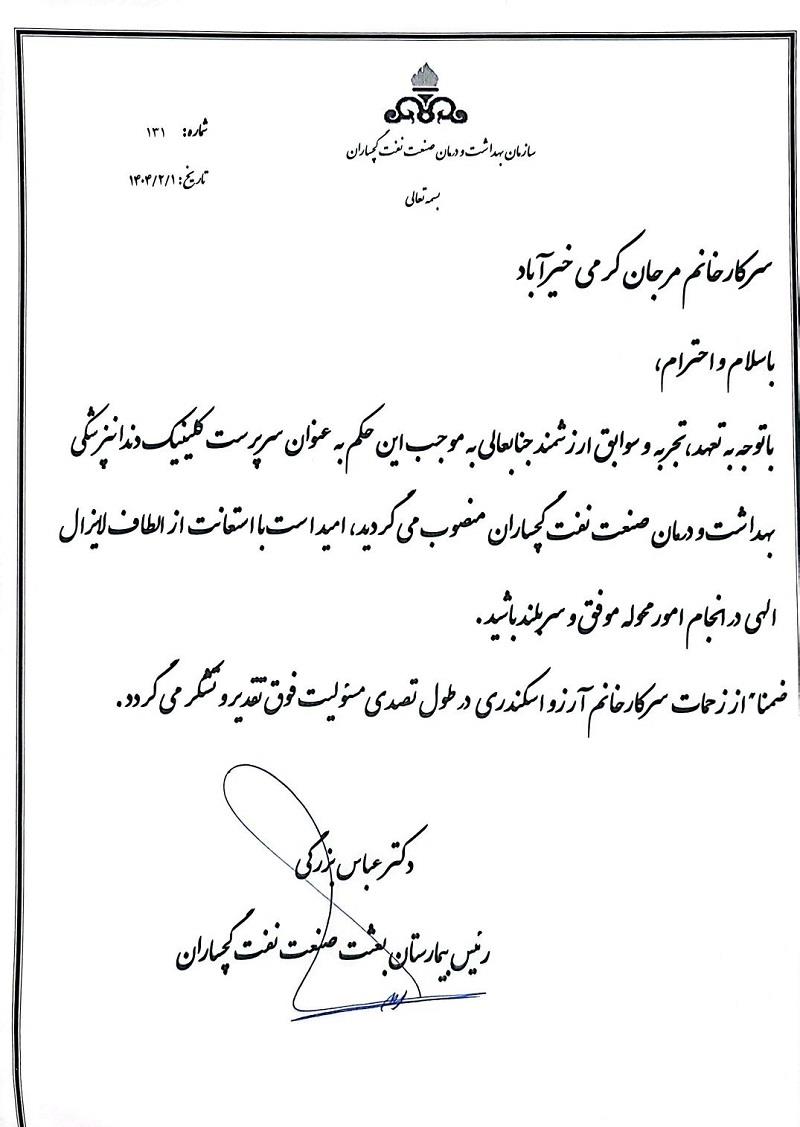 سازمان بهداشت و درمان صنعت نفت گچساران
شماره: ۱۳۱
تاریخ: ۱۴۰۴/۲/۱
بسمه تعالی
سرکار خانم مرجان کرمی خیرآباد
باسلام و احترام،
باتوجه به تعهد، تجربه و سوابق ارزشمند جنابعالی به موجب این حکم به عنوان سرپرست کلینیک دندانپزشکی
بهداشت و درمان صنعت نفت گچساران منصوب می گردید، امید است با استعانت از الطاف لایزال
الهی در انجام امور محوله موفق و سربلند باشید.
ضمنا" از زحمات سرکار خانم آرزو اسکندری در طول تصدی مسئولیت فوق تقدیر و تشکر می گردد.
دکتر عباس بزرگی
رئیس بیمارستان بعثت صنعت نفت گچساران